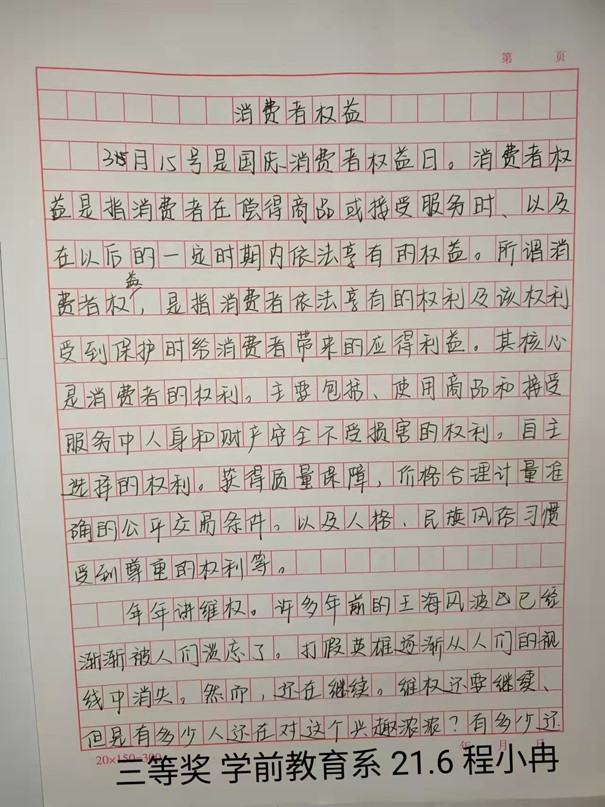 第 页
消费者权益
3月15号是国际消费者权益日。消费者权
益是指消费者在偿得商品或接受服务时、以及
在以后的一定时期内依法享有的权益。所谓消
费者权益，是指消费者依法享有的权利及该权利
受到保护时给消费者带来的应得利益。其核心
是消费者的权利。主要包括、使用商品和接受
服务中人身和财产安全不受损害的权利。自主
选择的权利。获得质量保障，价格合理计量准
确的公平交易条件。以及人格、民族风俗习惯
受到尊重的权利等。
年年讲维权。许多年前的王海风波已经
渐渐被人们淡忘了。打假英雄逐渐从人们的视
线中消失。然而，还在继续。维权还要继续、
但是有多少人还在对这个兴趣浓浓？有多少还
20×15=300 年 月 日
三等奖 学前教育系 21.6 程小冉